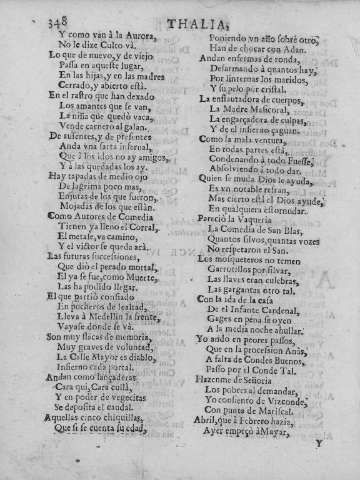 348
THALIA,
Y como van à la Aurora,
No le dize Culco và.
Lo que de nuevo, y de viejo
Passa en aqueste lugar,
En las hijas, y en las madres
Cerrado, y abierto està.
En el rastro que han dexado
Los amantes que se van,
La niña que quedò vaca,
Vende carnero al galan.
De ausentes, y de presentes
Anda vna sarta infernal,
Que à los idos no ay amigos,
Y à las quedadas los ay.
Hay tapadas de medio ojo
De lagrima poco mas,
Enjutas de los que fueron,
Mojadas de los que estàn.
Como Autores de Comedia
Tienen ya lleno el Corral,
El metase, va camino,
Y el victor se queda acà.
Las futuras successiones,
Que diò el pecado mortal,
El ya se fue, como Muerte,
Las ha podido llegar.
El que partiò confiado
En pucheros de lealtad,
Lleva à Medellin la frente,
Vayase donde se và.
Son muy flacas de memoria,
Muy graves de voluntad,
La Calle Mayor es diablo,
Infierno cada portal.
Andan como lançaderas
Cara qui, Cara cullà,
Y en poder de vegecitas
Se deposita el caudal.
Aquellas cinco chiquillas,
Que si se cuenta su edad,
Poniendo vn año sobre otro,
Han de chocar con Adan.
Andan enfermas de ronda,
Desarmando à quantos hay,
Por linternas los maridos,
Y su pelo por cristal.
La ensautadora de cuerpos,
La Madre Masicoral,
La engarçadora de culpas,
Y de el infierno çaguan.
Como la mala ventura,
En todas partes està,
Condenando à todo Fuesse,
Absolviendo à todo dar.
Quien se muda Dios le ayuda,
Es vn notable refran,
Mas cierto està el Dios ayude,
En qualquiera estornudar.
Pareciò la Vaqueria
La Comedia de San Blas,
Quantos silvos, quantas vozes
No respetaron el San.
Los mosqueteros no temen
Garrotillos por silvar,
Las llaves eran culebras,
Las gargantas otro tal.
Con la ida de la casa
De el Infante Cardenal,
Gages en pena se oyen
A la media noche ahullar.
Yo ando en peores passos,
Que en la procession Anàs,
A falta de Condes Buenos,
Passo por el Conde Tal.
Hazenme de Señoria
Los pobres al demandar,
Yo consiento de Vizconde,
Con punta de Mariscal.
Abril, que à Febrero hazia,
Ayer empeçò à Mayar,
Y